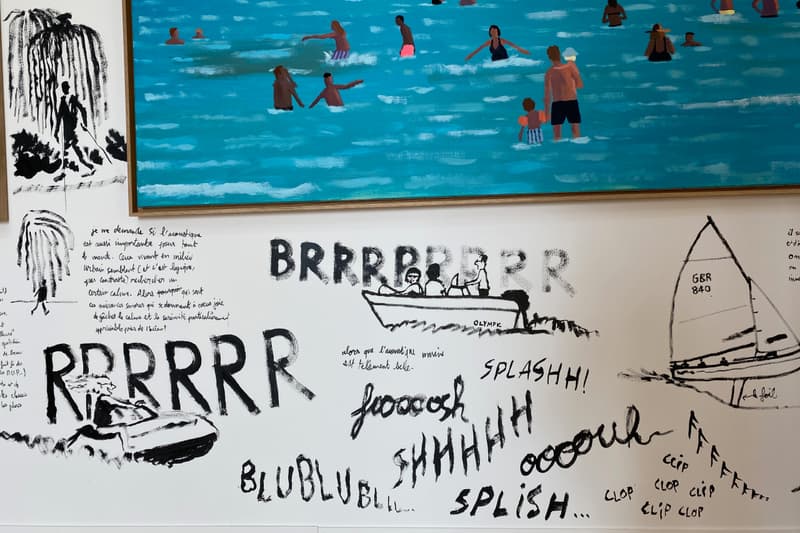 je me demande si l'acoustique
est aussi importante pour tout
le monde. Ceux vivant en milieu
urbain semblent (et c'est logique,
par contraste) rechercher un
certain calme. Alors pourquoi
ces nuisances sonores qui
gâcher le calme et la sérénité particulièrement
appréciable près de l'eau!
BRRRRRRRR
OLYMPIC
GBR
840
RRRRRRR
alors que l'acoustique marine
est tellement belle.
SPLASHH!
froooosh
foil
SHHHHHH
ooooouh
BLUBLUBLU...
SPLISH...
CLIP
CLOP CLOP CLIP
CLIP CLOP